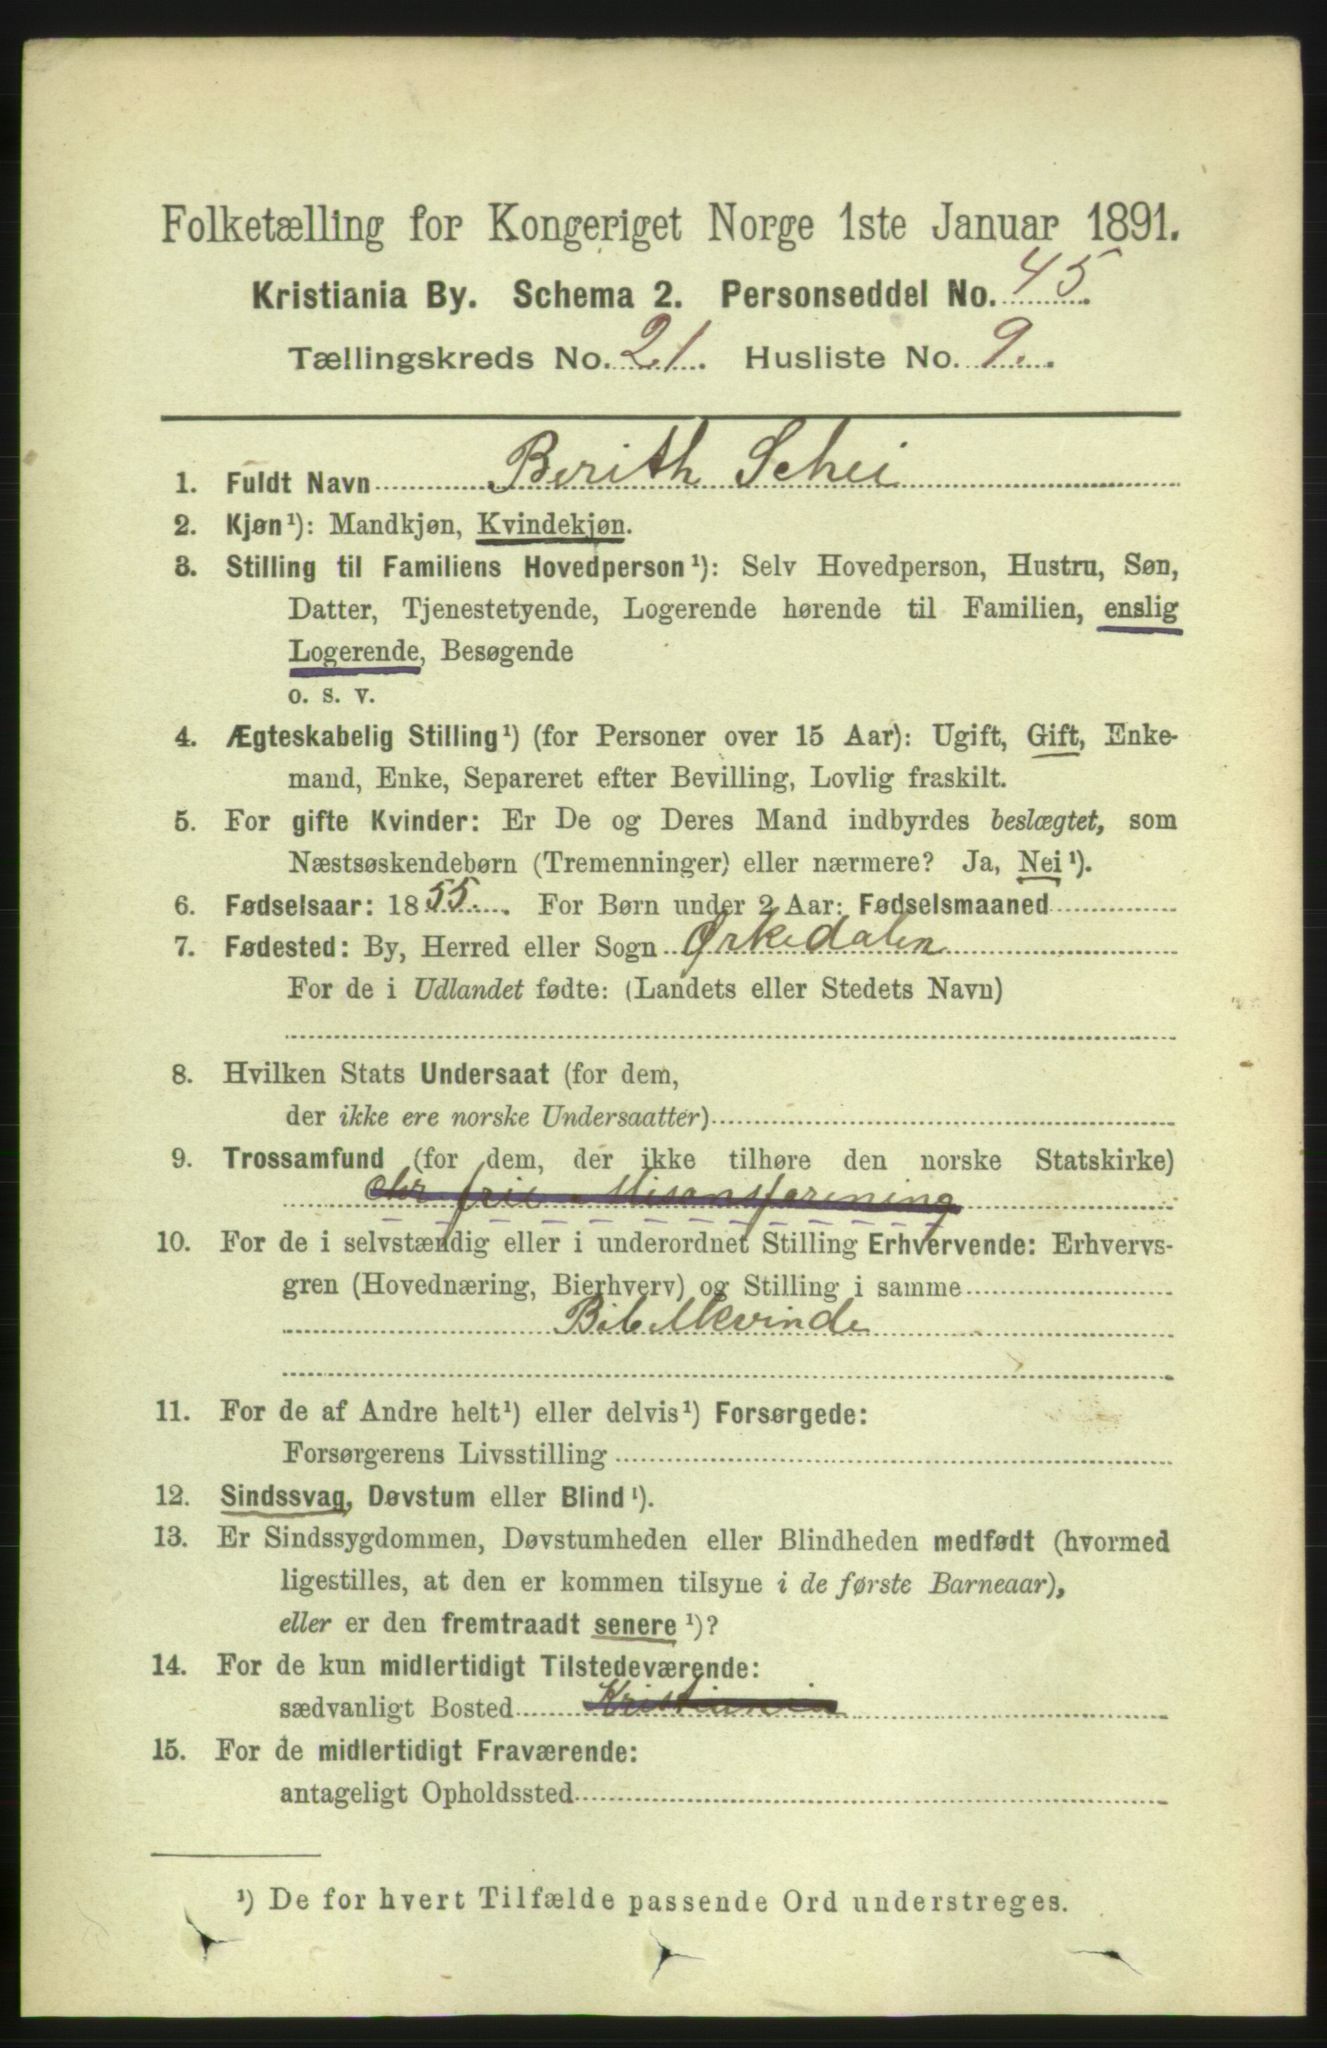 Folketælling for Kongeriget Norge 1ste Januar 1891.
Kristiania By. Schema 2. Personseddel No. 45.
Tællingskreds No. 21. Husliste No. 9.
1. Fuldt Navn Berith Schei
2. Kjøn¹): Mandkjøn, Kvindekjøn.
3. Stilling til Familiens Hovedperson¹): Selv Hovedperson, Hustru, Søn,
Datter, Tjenestetyende, Logerende hørende til Familien, enslig
Logerende, Besøgende
o. s. v.
4. Ægteskabelig Stilling¹) (for Personer over 15 Aar): Ugift, Gift, Enke-
mand, Enke, Separeret efter Bevilling, Lovlig fraskilt.
5. For gifte Kvinder: Er De og Deres Mand indbyrdes beslægtet, som
Næstsøskendebørn (Tremenninger) eller nærmere? Ja, Nei¹).
6. Fødselsaar: 1855. For Børn under 2 Aar: Fødselsmaaned
7. Fødested: By, Herred eller Sogn Ørkedalen
For de i Udlandet fødte: (Landets eller Stedets Navn)
8. Hvilken Stats Undersaat (for dem,
der ikke ere norske Undersaatter)
9. Trossamfund (for dem, der ikke tilhøre den norske Statskirke)
chr frie Misonsforening
10. For de i selvstændig eller i underordnet Stilling Erhvervende: Erhvervs-
gren (Hovednæring, Bierhverv) og Stilling i samme
Bibelkvinde
11. For de af Andre helt¹) eller delvis¹) Forsørgede:
Forsørgerens Livsstilling
12. Sindssvag, Døvstum eller Blind¹).
13. Er Sindssygdommen, Døvstumheden eller Blindheden medfødt (hvormed
ligestilles, at den er kommen tilsyne i de første Barneaar),
eller er den fremtraadt senere¹)?
14. For de kun midlertidigt Tilstedeværende:
sædvanligt Bosted Kristiania
15. For de midlertidigt Fraværende:
antageligt Opholdssted
¹) De for hvert Tilfælde passende Ord understreges.